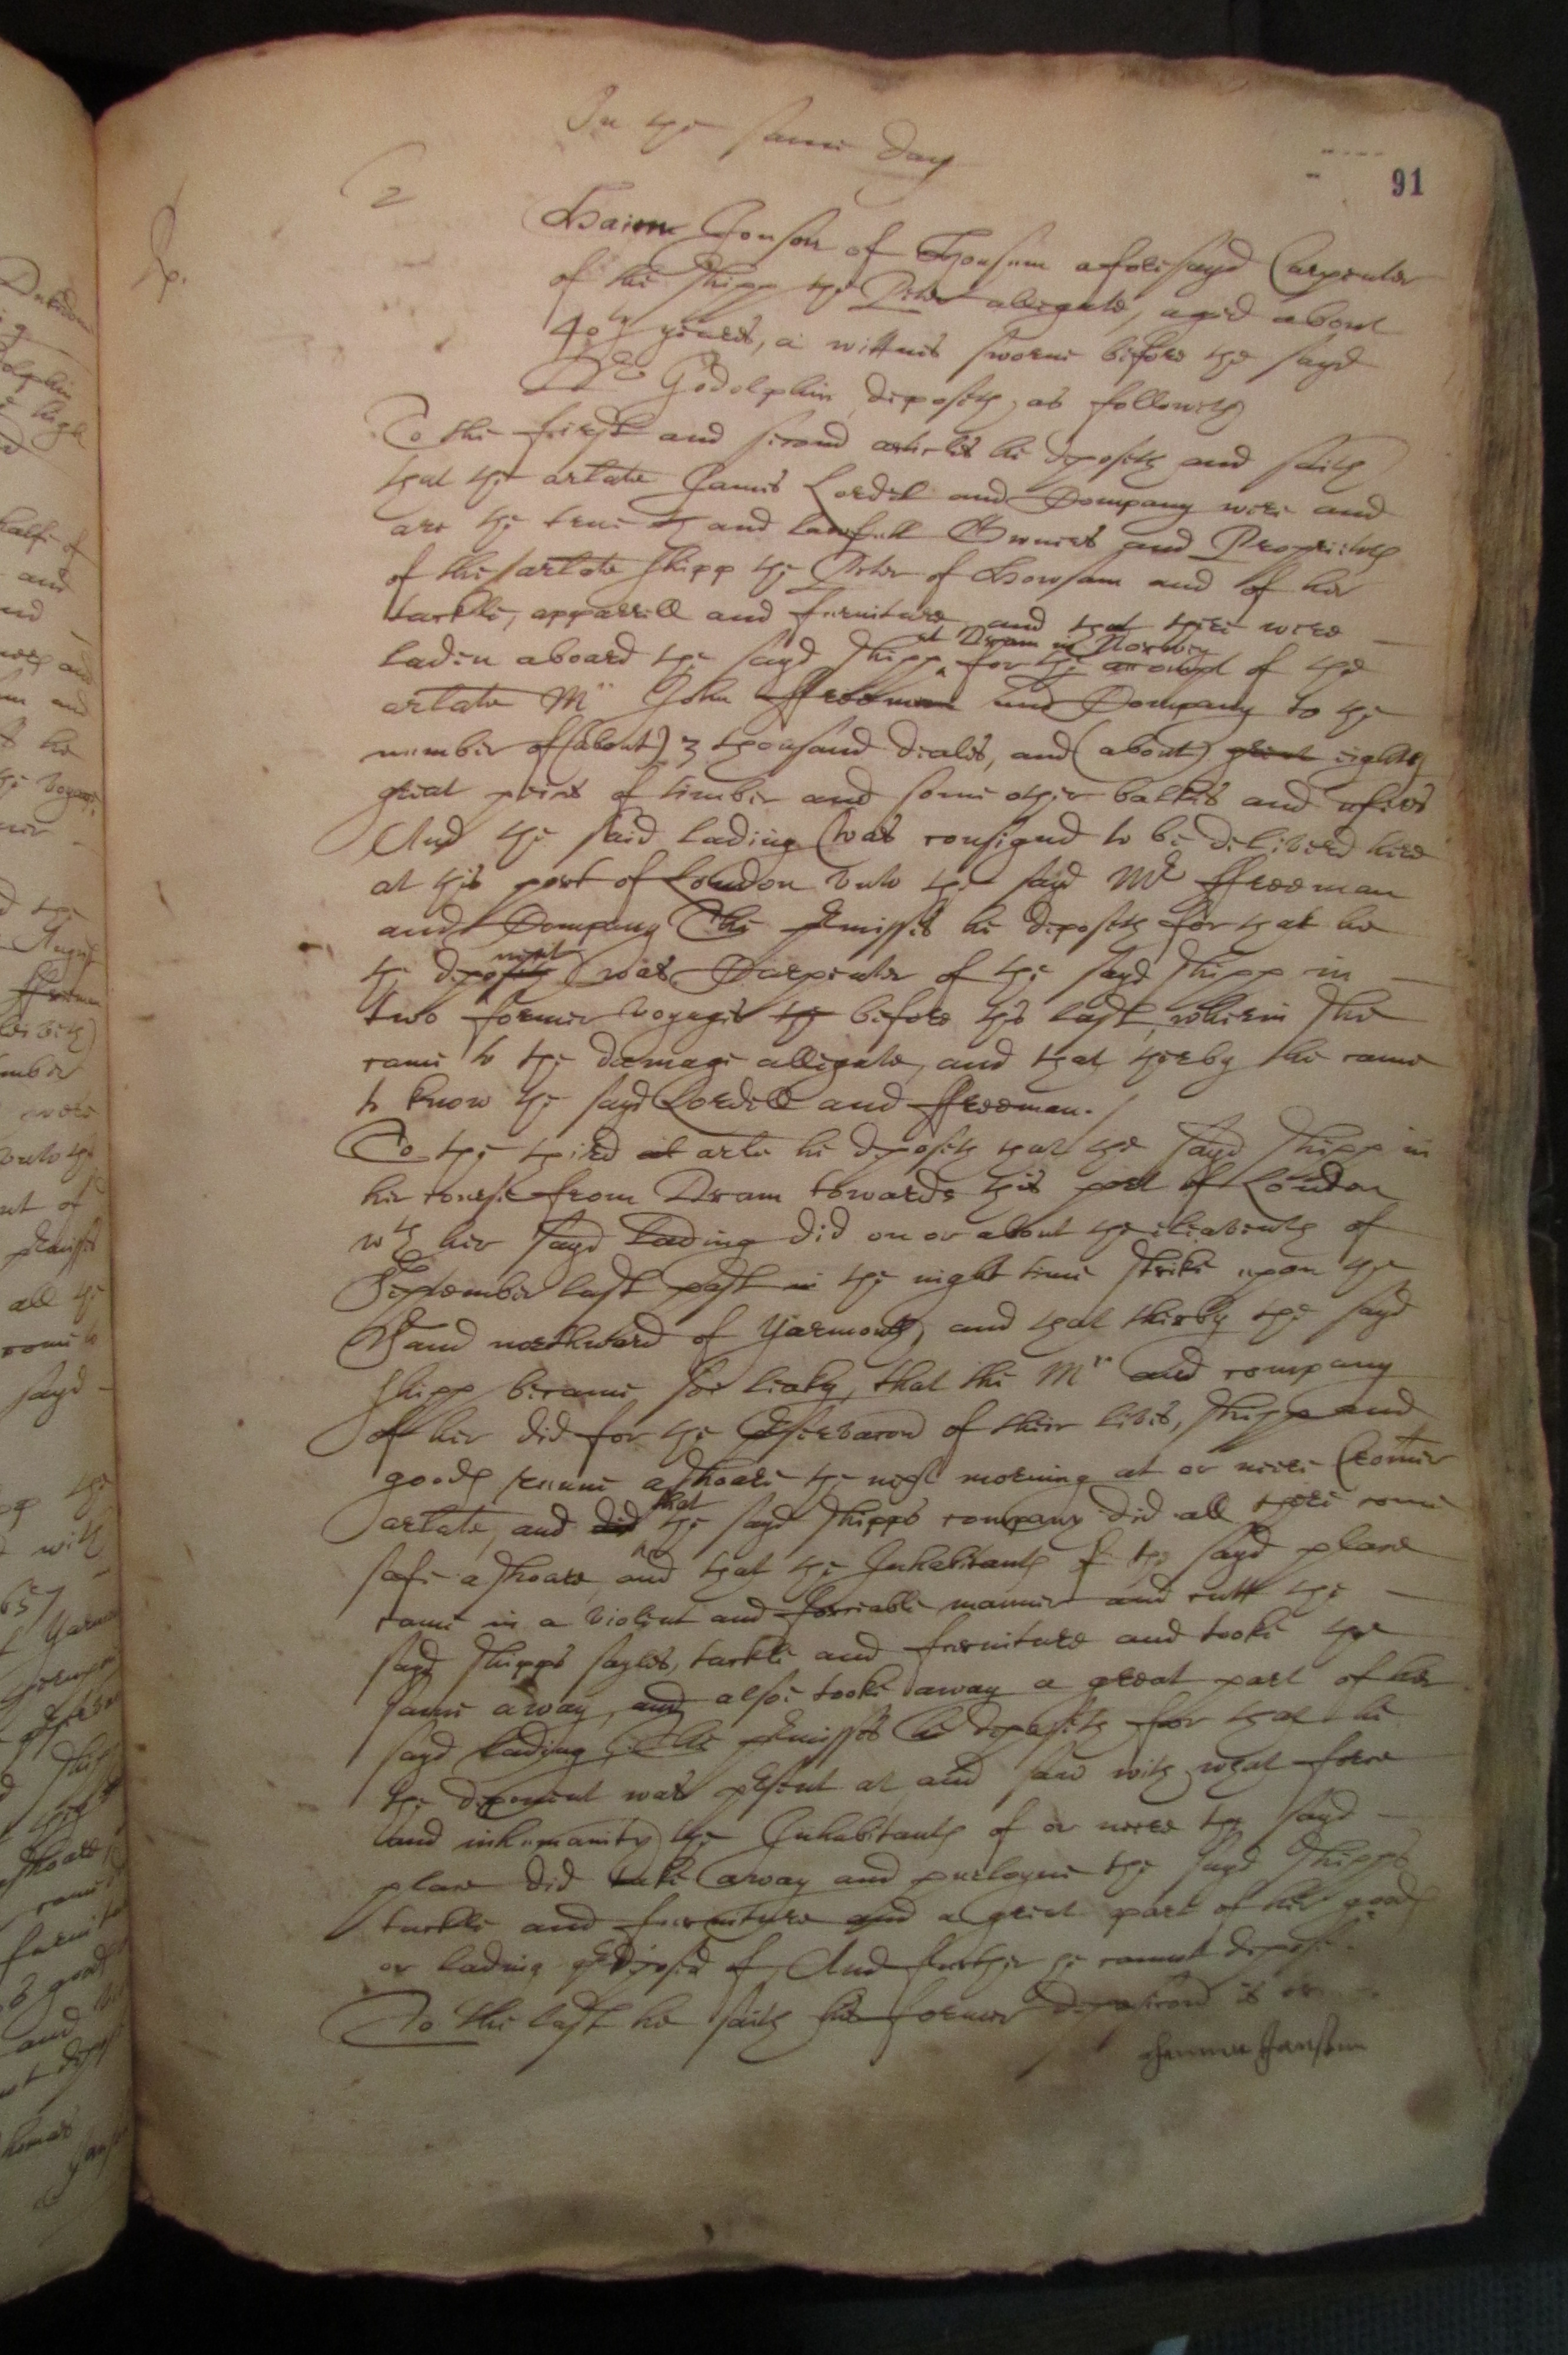 In the same day
91
2
Rp.
Haime Jonson of Housum aforesayd Carpenter
of the shipp the Peter allegate, aged about
40ty yeares, a wittnes sworne before the sayd
Dr Godolphin deposeth as followeth
To the first and second articles he deposeth and saith
that the arlate James Lordell and Company were and
are the true th and lawfull Owners and Proprietors
of the sartate shipp the Peter of Howsam and of her
tackle, apparrell and furniture and that there were
at Dram in Norway
laden aboard the sayd shipp for the accompt of the
arlate Mr John ffreeman and Company to the
number of (about) 3 thousand deales, and (about) great eighty
great peices of timber and some other balkes and ufers
And the said lading was consigned to be delivered here
at this port of London unto the sayd Mr ffreeman
and Company The premisses he deposeth for that he
nent
the deposeth was Carpenter of the sayd shipp in
two former voyages th before this last, wherin she
came to the damage allegate, and that therby he came
to know the sayd Lordell and ffreeman./
To the third at arle he deposeth that the sayd shipp in
her course from Dram towards this port of London
wth her sayd lading did on or about the eleaventh of
September last past in the night time strike upon the
Sand northward of Yarmouth, and that therby the sayd
shipp became soe leaky, that the Mr and company
of her did for the preservacon of their lives, shipp and
goods runne ashoare the next morning at or neere Cromer
that
arlate, and did the sayd shipps company did all there come
safe ashoare and that the Inhabitants of the sayd place
came in a violent and forceable manner and cutt the
sayd shipps sayles, tackle and furniture and tooke the
same away, and alsoe tooke away a great part of her
sayd lading, The premisses he deposeth for that he
the deponent was present at and saw with what force
and inhumanity the Inhabitants of or neere the sayd
place did take away and purloyne the sayd shipps
tackle and furniture and a great part of her goods
or lading predeposed of, And further he cannot depose.
To the last he saith his former deposicon is
Jansen